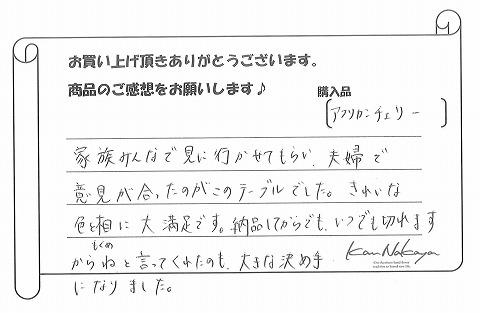 お買い上げ頂きありがとうございます。
商品のご感想をお願いします♪
購入品
アフリカンチェリー
家族みんなで見に行かせてもらい、夫婦で
意見が合ったのがこのテーブルでした。きれいな
色と相に大満足です。納品してからでも、いつでも切れます
もくめ
からねと言ってくれたのも、大きな決め手
になりました。
KanNakaya